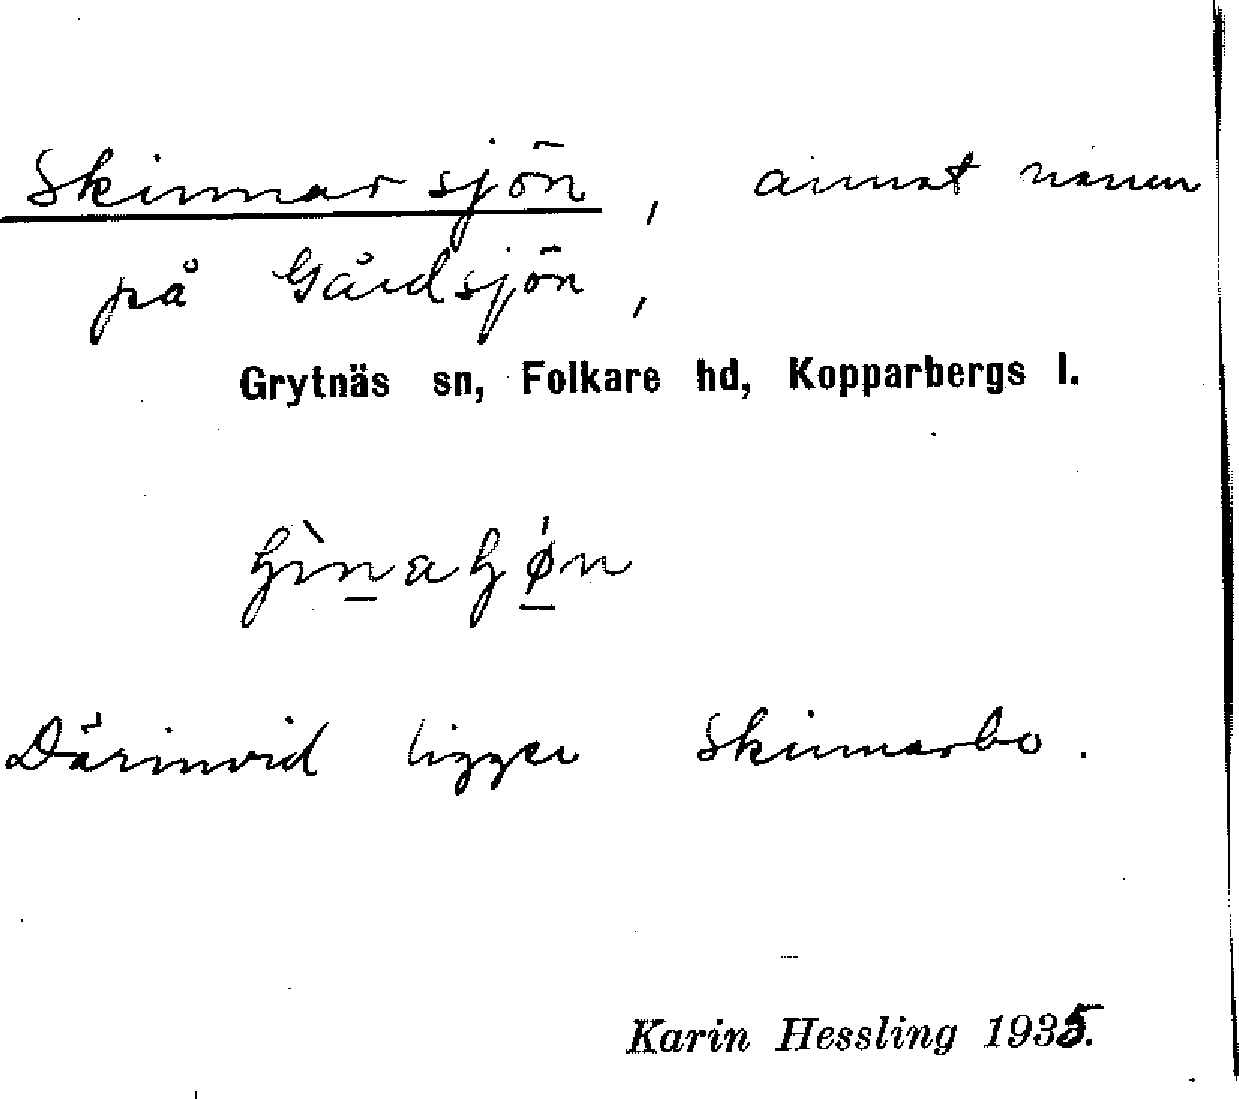 Skinnarsjön, annat namn
på Gårdsjön,
Grytnäs sn, Folkare hd, Kopparbergs l.
Därinvid ligger Skinnarbo.
Karin Hessling 1935.